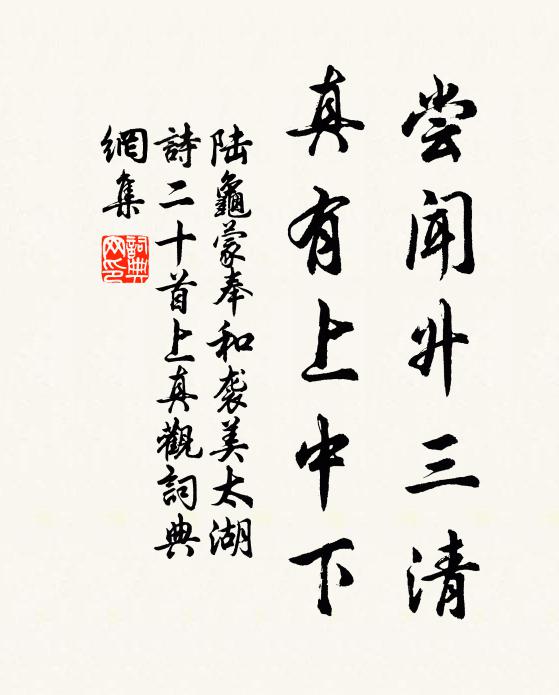 尝闻升三清
真有上中下
陆龜蒙奉和袭美太湖
詩二十首上真觀詞典
網集
詞典網印